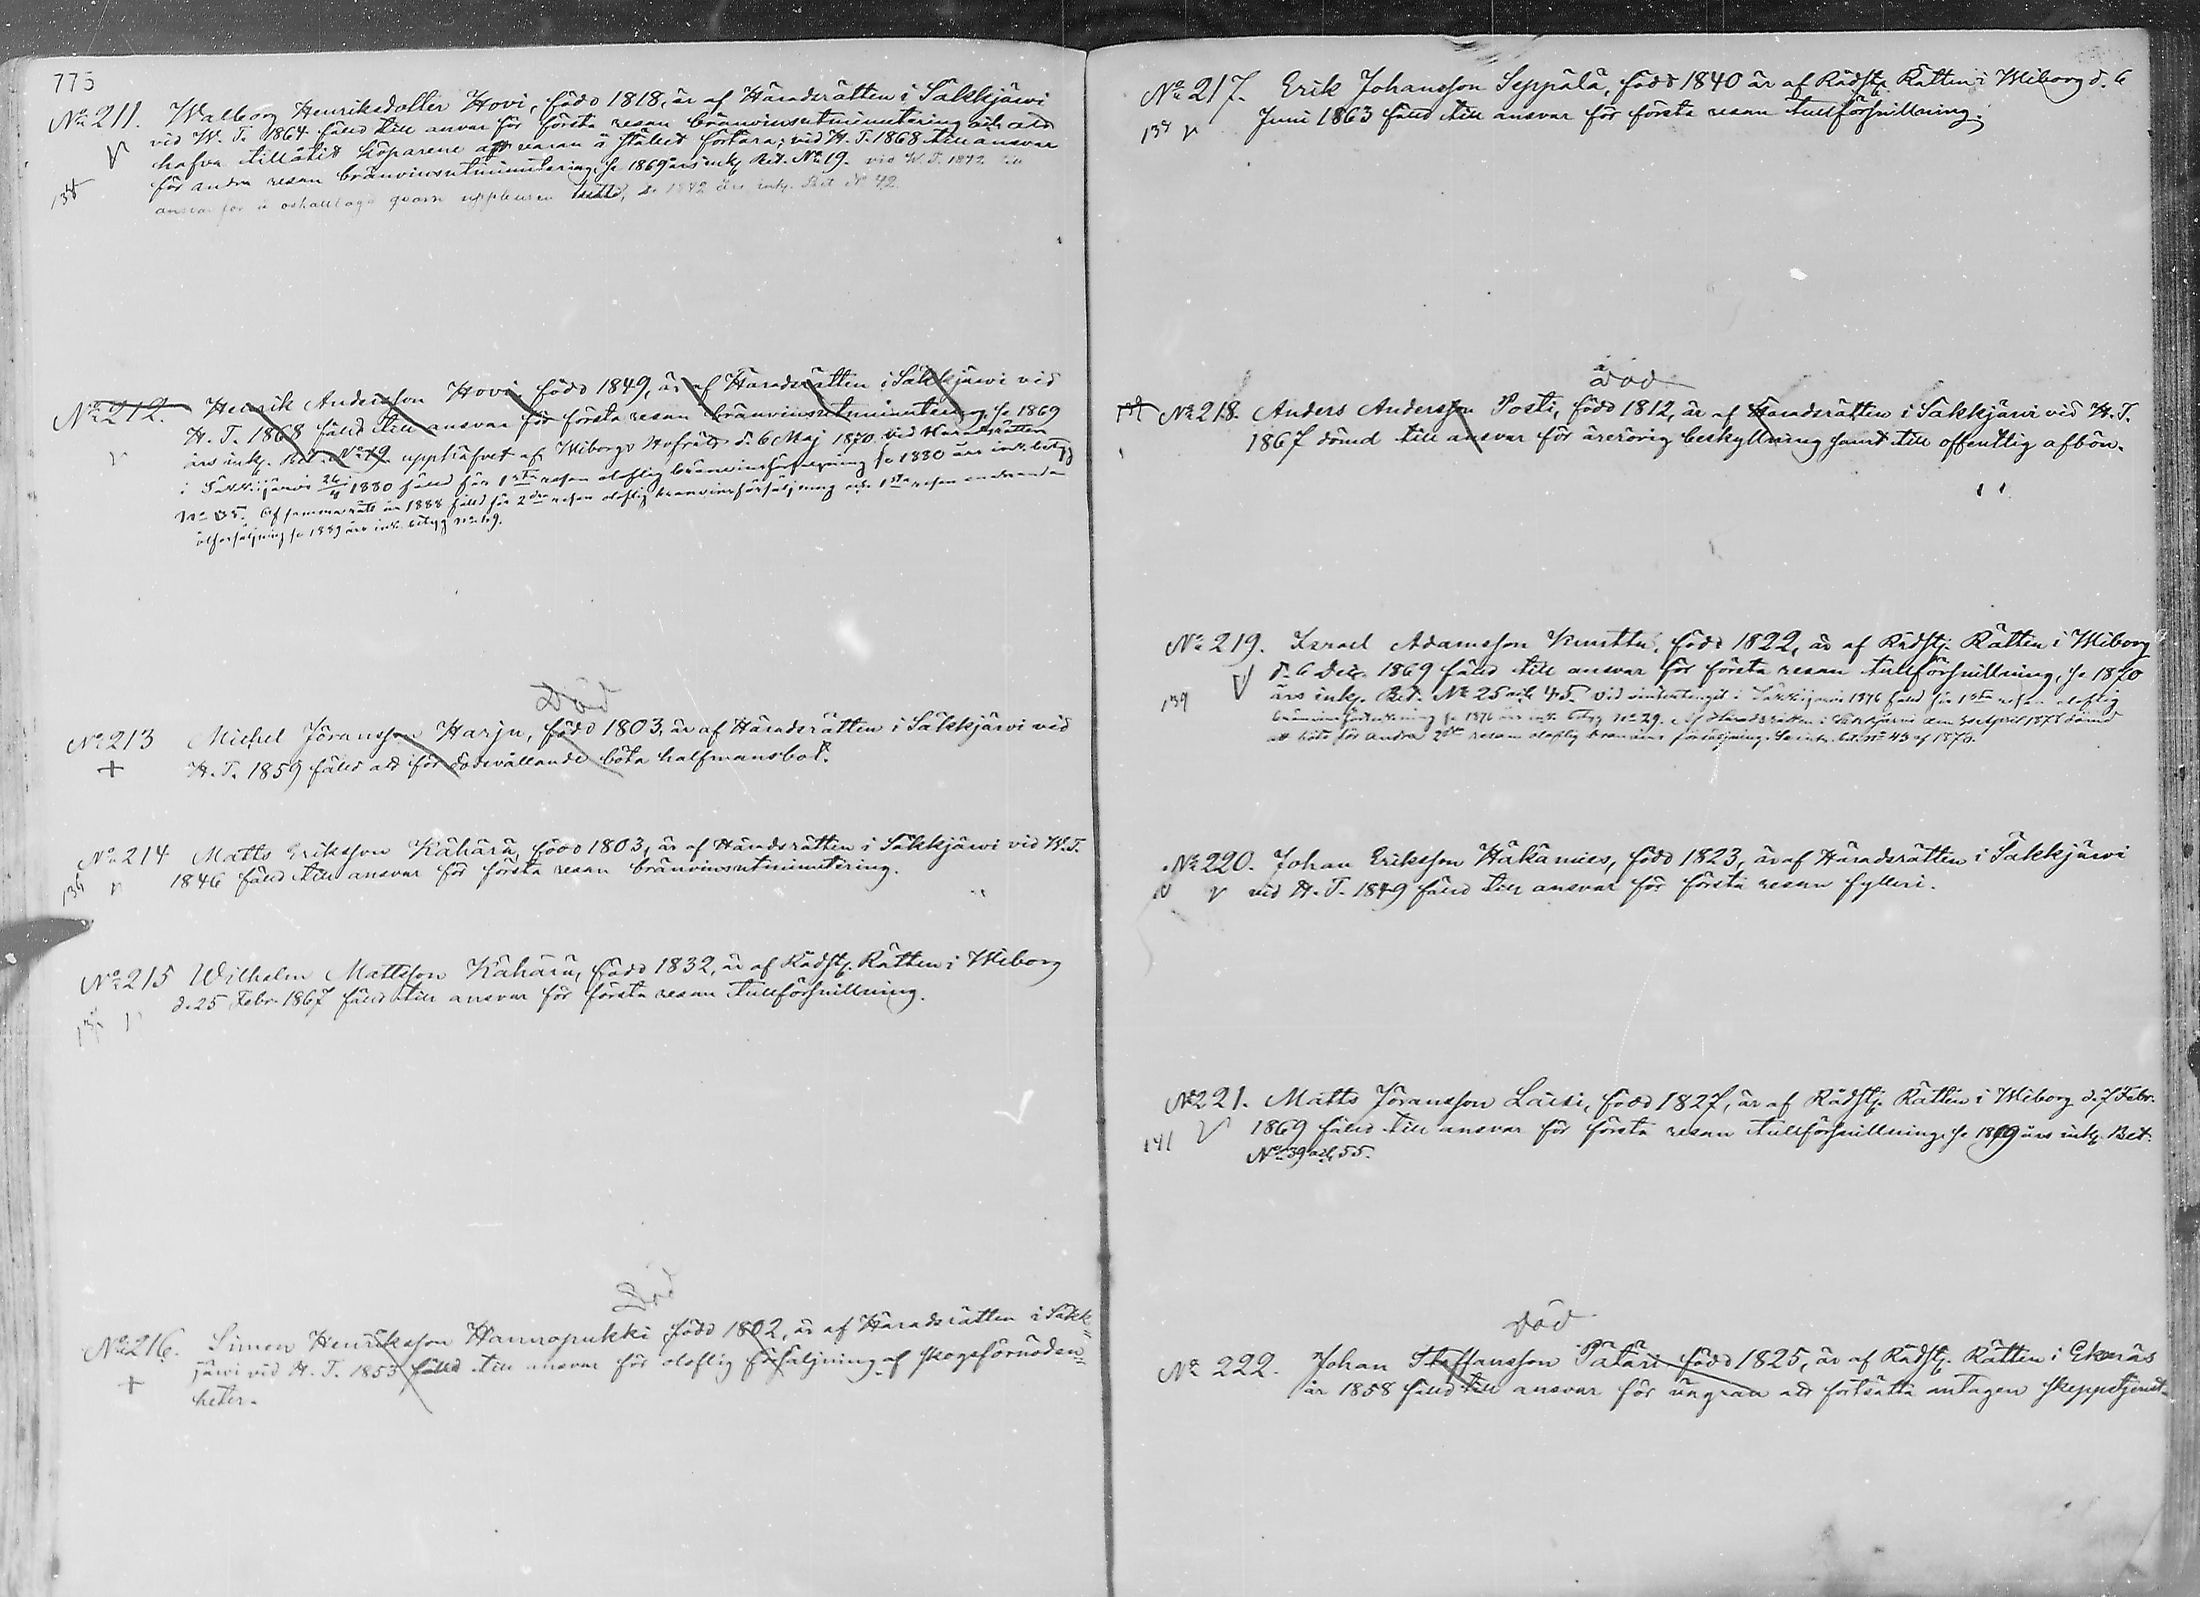 775
No 211. Walborg Henriksdotter Hovi, född 1818, är af Häradsrätten i Säkkjärvi
vid W. T. 1864 fälld till ansvar för första resan bränvinsutminutering och att
hafva tillåtit köparene att varan å stället förtära; vid H. T. 1868 till ansvar
för andra resan bränvinsutminutering, se 1869 års ink. Bet. No 19. vid W. T. 1872 till
138
ansvar för
No 212. Henrik Andersson Hovi, född 1849, är af Häradsrätten i Säkkjärvi vid
H. T. 1868 fälld till ansvar för första resan bränvinsutminutering, se 1869
års ink. Bet. No 19. upphäfvet af Wiborgs Hofrätt d. 6 Maj 1870. Vid Häradsrätten
i Säkkijärvi 1880 fälld för 1sta resan olaflig bränvinsförsäljning se 1880 års ink. betyg
No 35. Af samma rätt år 1888 fälld för 2dra resan olaflig bränvinsförsäljning och 1sta resan
ölförsäljning se 1889 års ink. betyg
Död
No 213 Michel Jöransson Harju, född 1803, är af Häradsrätten i Säkkjärvi vid
+ H. T. 1859 fälld att för dödsvållande böta half mansbot.
No 214 Matts Eriksson Kähärä, född 1803, är af Häradsrätten i Säkkjärvi vid W. T.
136 1846 fälld till ansvar för första resan bränvinsutminutering.
No 215 Wilhelm Mattsson Kähärä, född 1832, är af Rådst. Rätten i Wiborg
d. 25 Febr. 1867 fälld till ansvar för första resan tullförsnillning.
Död
No 216. Simon Henriksson Hannapukki född 1802, är af Häradsrätten i Säkk=
+ järvi vid H. T. 1853 fälld till ansvar för olaflig försäljning af skogsförnöden=
heter.
No 217. Erik Johansson Seppälä, född 1840 är af Rådst. Rätten i Wiborg d. 6
Juni 1863 fälld till ansvar för första resan tullförsnillning.
död
No 218. Anders Andersson Posti, född 1812, är af Häradsrätten i Säkkjärvi vid H. T.
1867 dömd till ansvar för ärerörig beskyllning samt till offentlig afbön.
No 219. Israel Adamsson Knuttu, född 1822, är af Rådst. Rätten i Wiborg
d. 6 Dec. 1869 fälld till ansvar för första resan tullförsnillning, se 1870
139 års ink. Bet. No 25 och 45. Vid vintertinget i Säkkijärvi 1876 fälld för 1sta resan olaflig
se 1876 års ink. betyg No 29. Af Häradsrätten i Säkkijärvi den April 1878 dömd
att böta för andra 2dra resan olaflig bränvins försäljning. Se ink. bet. No 43 af 1878.
No 220. Johan Eriksson Häkämies, född 1823, är af Häradsrätten i Säkkjärvi
vid H. T. 1849 fälld till ansvar för första resan fylleri.
No 221. Matts Jöransson Laiti, född 1827, är af Rådst. Rätten i Wiborg d. 7 Febr.
141 1869 fälld till ansvar för första resan tullförsnillning, se 1869 års ink. Bet.
No 39 och 55.
Död
No 222. Johan Staffansson Pätäri född 1825, är af Rådst. Rätten i Ekenäs
år 1858 fälld till ansvar för vägran att fortsätta antagen skeppstjenst.